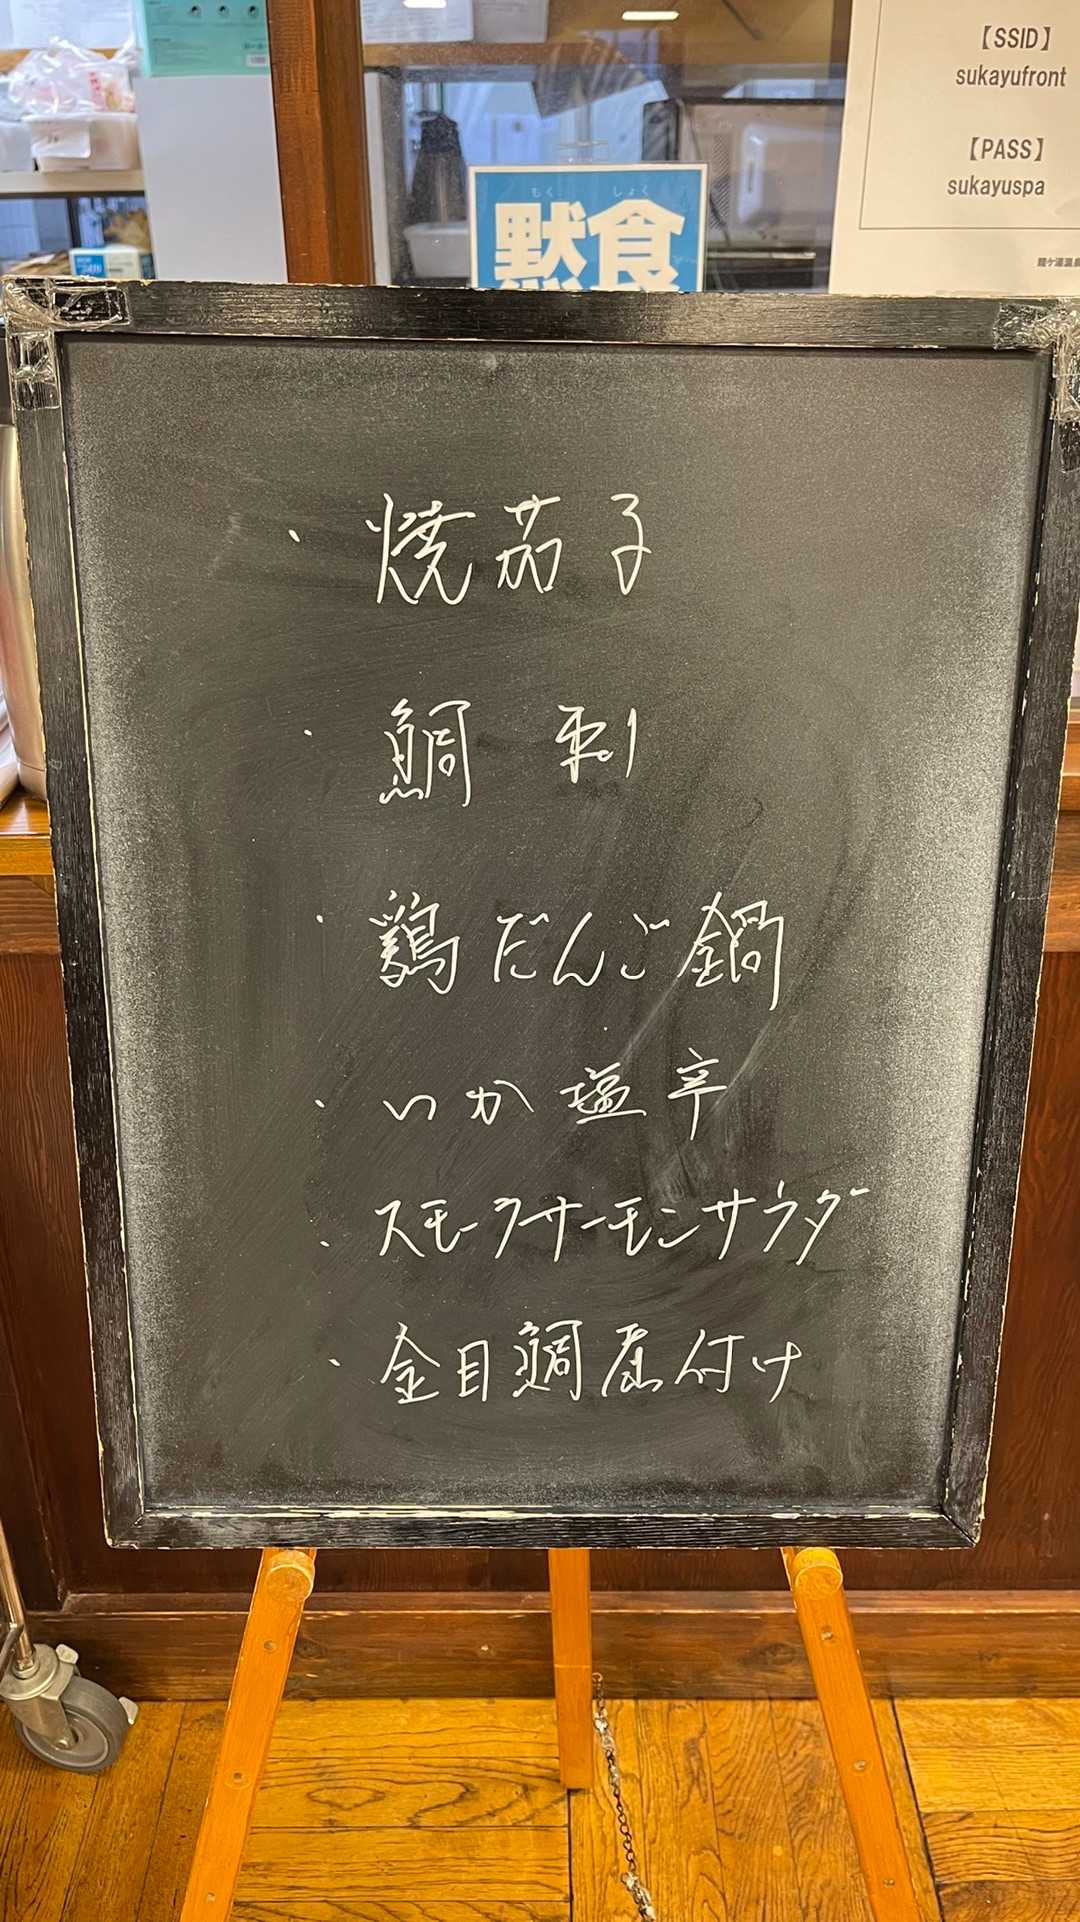 【SSID】
sukayufront
【PASS】
sukayuspa
もく しょく
黙食
・焼茄子
・鯛刺
・鶏だんご鍋
・いか塩辛
・スモークサーモンサラダ
・金目鯛煮付け